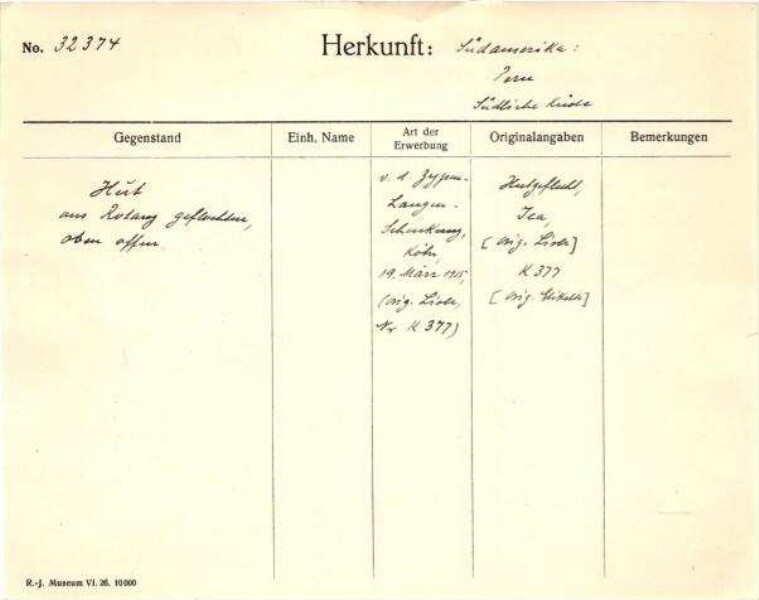 No. 32374
Herkunft: Südamerika:
Peru
Südliche Küste
Gegenstand
Einh. Name
Art der
Erwerbung
Originalangaben
Bemerkungen
Hut
aus Rotang geflochten,
oben offen.
v. d. Zypen-
Langen-
Schenkung,
Köln,
19. März 1915,
(orig. Liste,
Nr K 377)
Hutgeflecht,
Ica,
[orig. Liste]
K 377
[orig. Etikette]
R.-J. Museum VI. 26. 10000